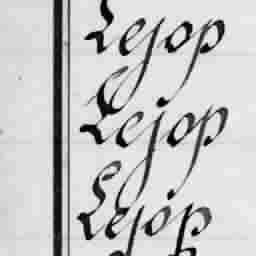 Lejop
Lejop
Lejop